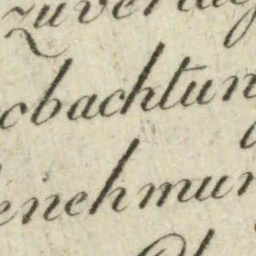 zuverläs
obachtun
enehmun